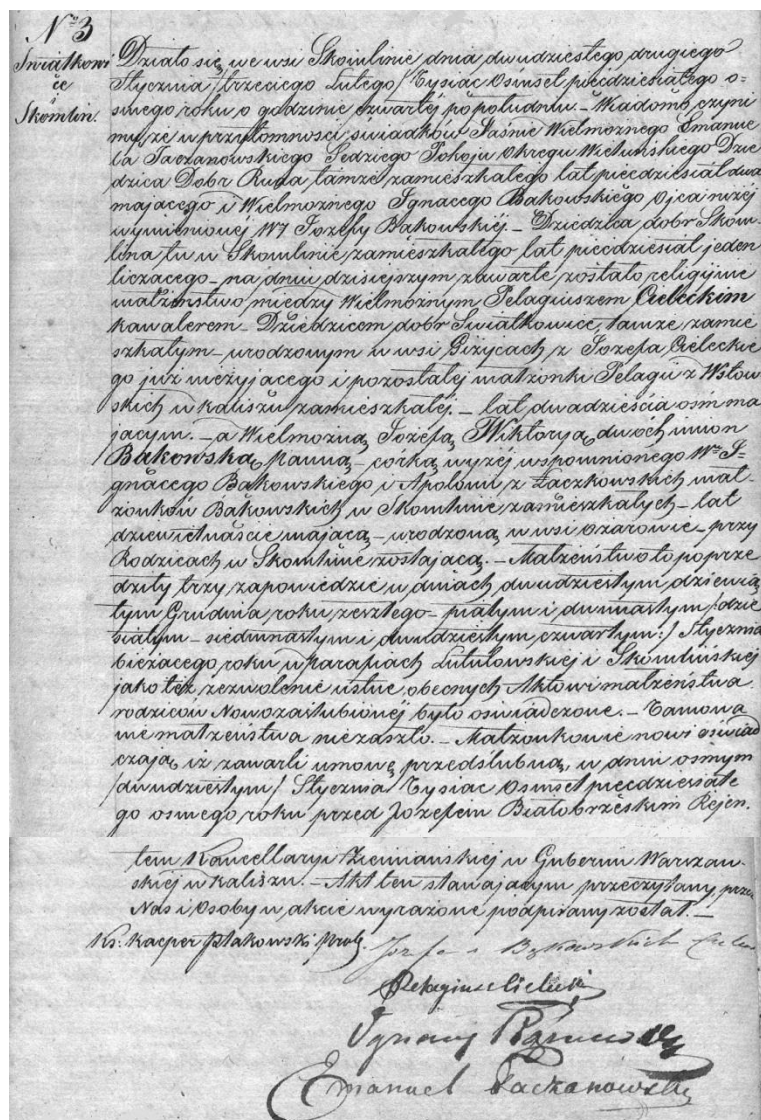 No 3
Swiątkowi
ce
i
Skomlin.
Działo się we wsi Skomlinie dnia dwudziestego drugiego
Stycznia /trzeciego Lutego/ Tysiac Osmset piecdziesiątego o-
smego roku o godzinie czwartéj popołudniu. – Wiadomo czyni
my, ze w przytomnosci swiadków Jaśnie Wielmoznego Emanue
la Taczanowskiego Sędziego Pokoju Okręgu Wieluńskiego Dzie
dzica Dobr Ruda, tamze zamieszkałego lat piecdziesiat dwa
mającego i Wielmoznego Ignacego Bąkowskiego Ojca niżéj
wymienionej Wéj Jozefy Bąkowskiéj. – Dziedzica dobr Skom-
lina tu w Skomlinie zamieszkałego lat piecdziesiat jeden
liczacego – na dniu dzisiejszym zawarte zostało religijne
małżeństwo między Wielmożnym Pelagiuszem Cieleckim
kawalerem – Dziedzicem dobr Swiątkowice, tamze zamie
szkałym – urodzonym w wsi Giżycach z Jozefa Cieleckie
go juz nieżyjącego i pozostałej małżonki Pelagii z Wstow
skich w Kaliszu zamieszkałéj. – lat dwadzieścia ośm ma
jącym. – a Wielmozną Jozefą Wiktoryą dwóch imion
Bąkowską, Panną – córką wyżéj wspomnionego Wo I-
gnacego Bąkowskiego i Apolonii z Łączkowskich mał-
zonków Bąkowskich w Skomlinie zamieszkałych – lat
dziewiętnaście mającą – urodzoną w wsi Ożarowie – przy
Rodzicach w Skomlinie zostającą. – Małzeństwo to poprze
dziły trzy zapowiedzie w dniach dwudziestym dziewią
tym Grudnia roku zeszłego – piątym i dwunastym /:dzie
siątym – siedmnastym i dwudziestym czwartym:/ Stycznia
bieżacego roku w parafiach Lututowskiej i Skomlińskiej
jako też zezwolenie ustne obecnych Aktowi małżeństwa
rodziców Nowozaślubionéj było oświadczone. – Tamowa
nie małżeństwa niezaszło. – Małżonkowie nowi oświad
czają, iz zawarli umowę przedślubną w dniu osmym
/dwudziestym/ Stycznia Tysiac Osmset piecdziesiate
go osmego roku przed Jozefem Białobrzeskim Rejen.
tem Kancellaryi Ziemianskiej w Gubernii Warszaw-
skiéj w Kaliszu. – Akt ten stawającym przeczytany, przez
Nas i Osoby w akcie wyrażone podpisany został. –
Ks: Kacper Ptakowski Prob.
Jozefa z Bąkowskich Cielecka
Pelagiusz Cielecki
Ignacy Bąkowski
Emanuel Taczanowski